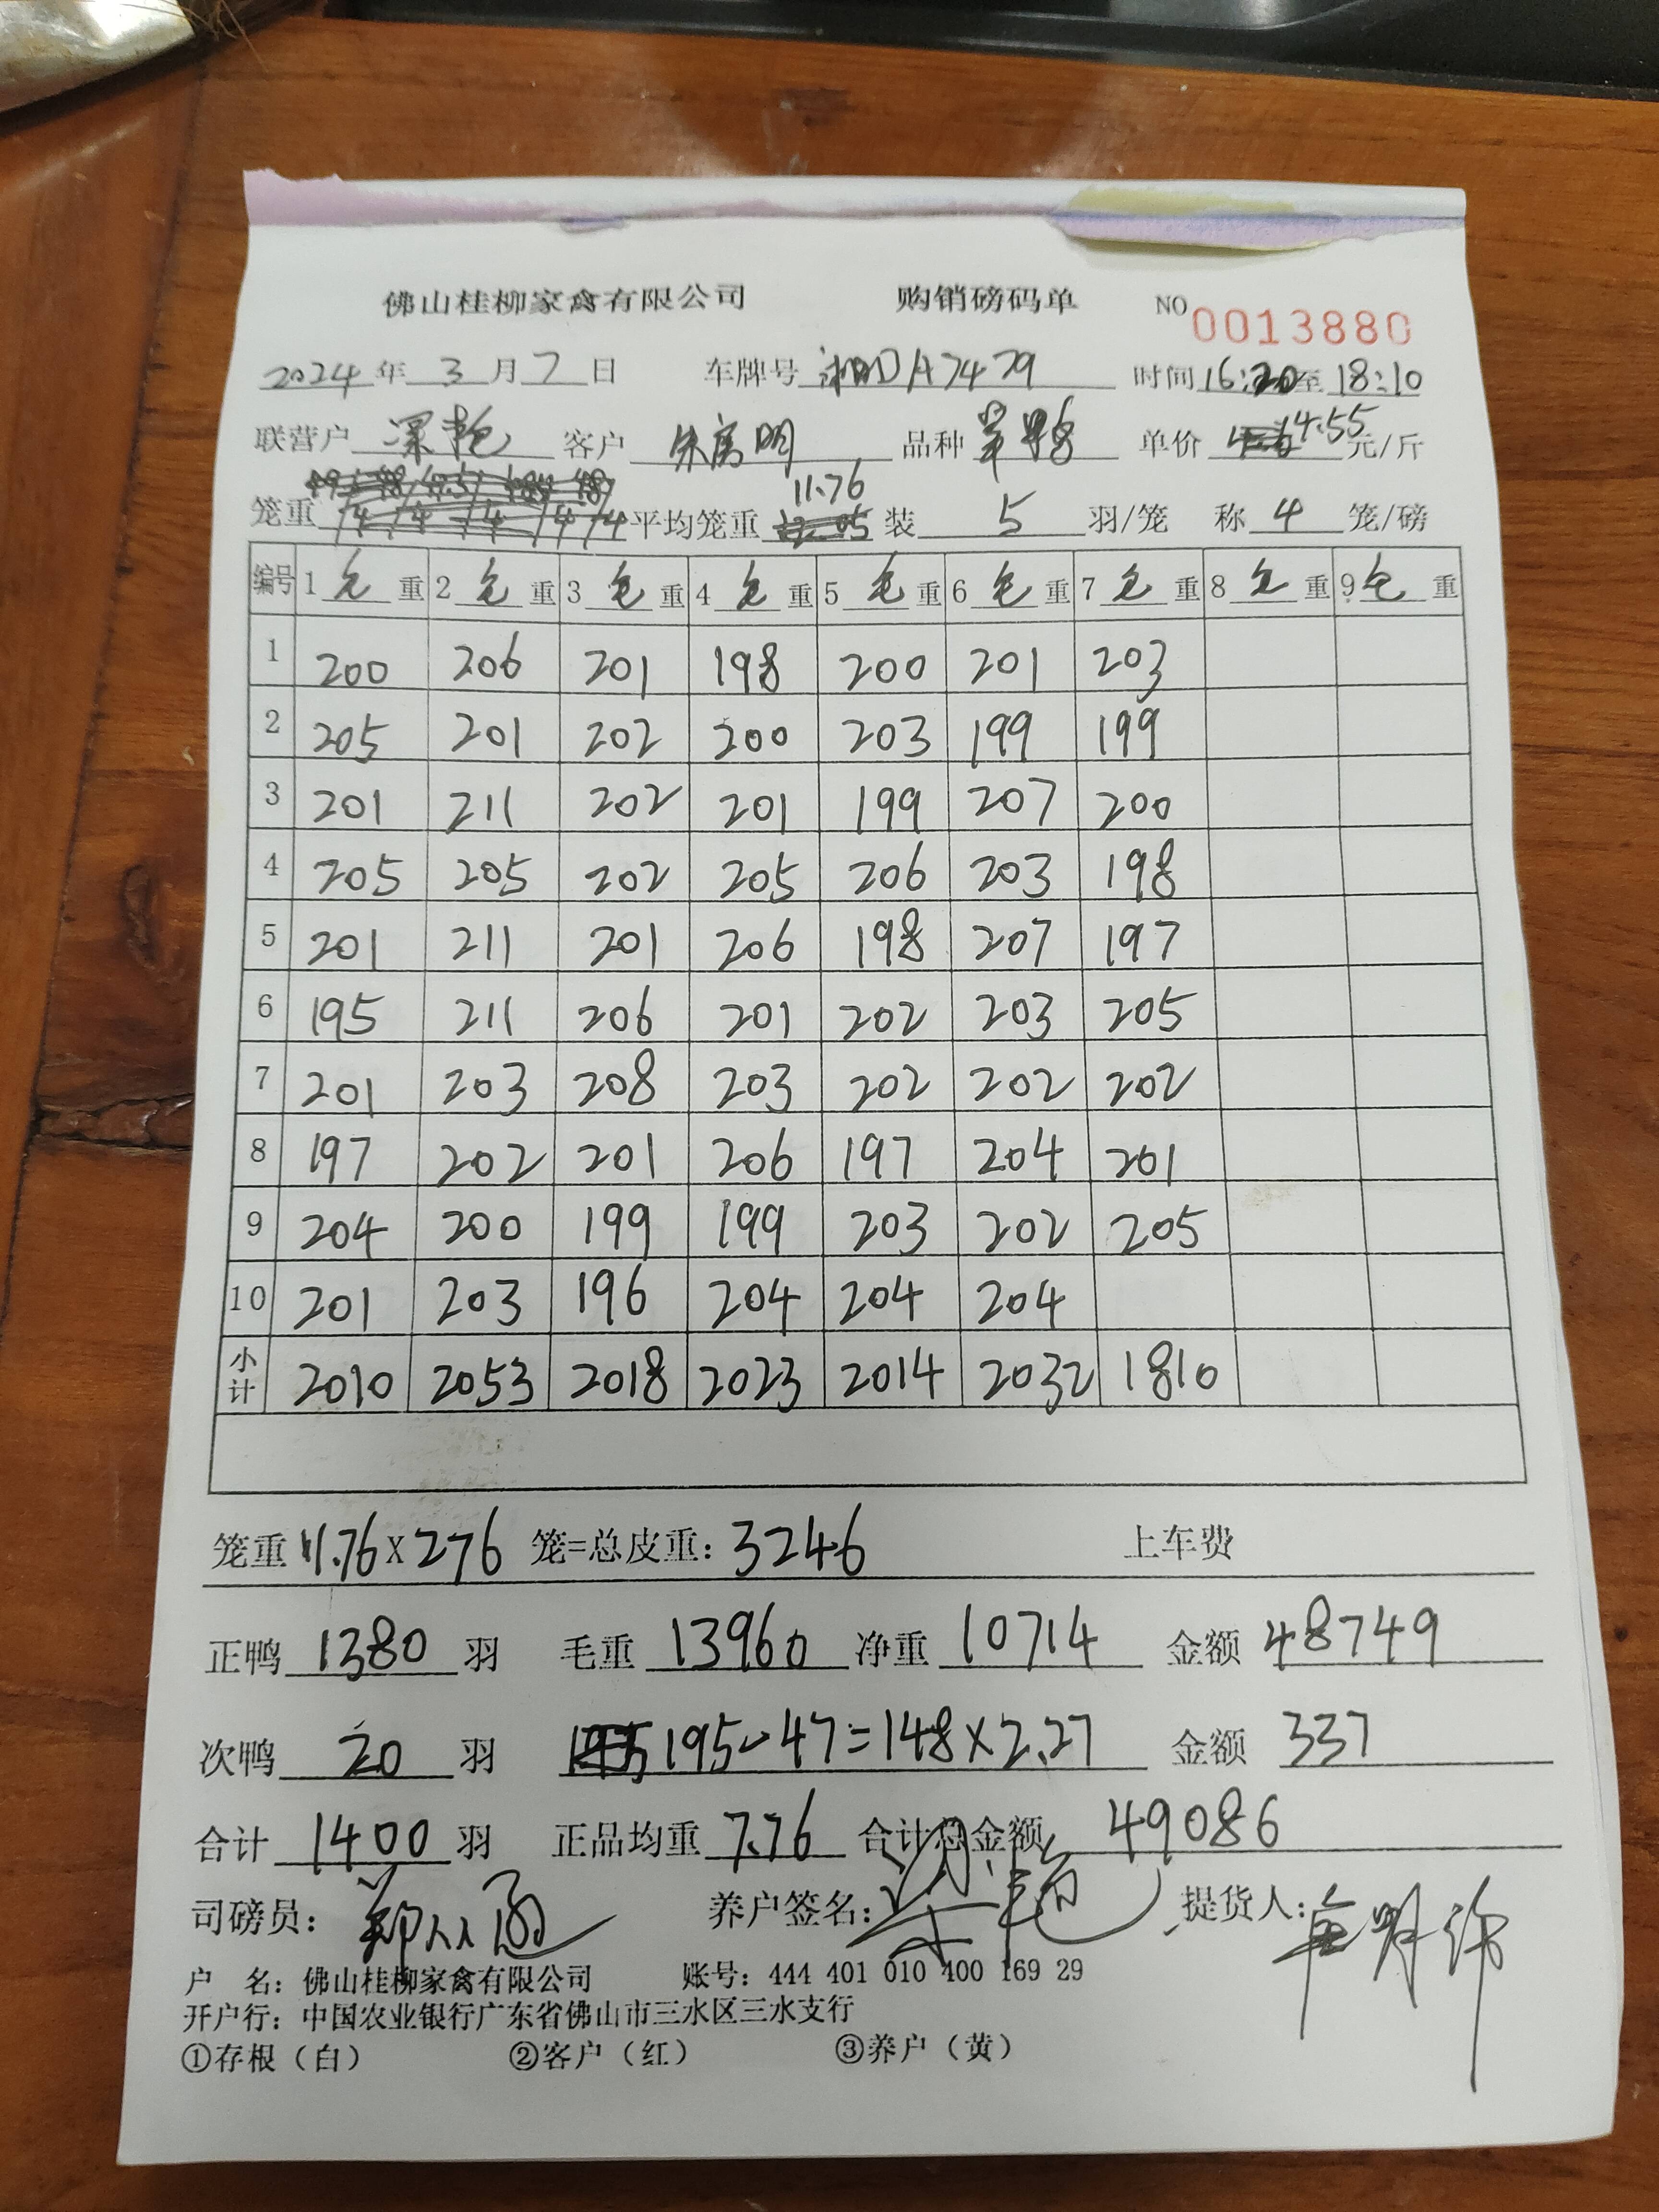 佛山桂柳家禽有限公司 购销磅码单 NO 0013880
2024 年 3 月 7 日 车牌号 湘D A7479 时间 16:20 至 18:10
联营户 客户 品种 单价 4.55 元/斤
11.76
笼重 平均笼重 装 5 羽/笼 称 4 笼/磅
编号 1 毛 重 2 毛 重 3 毛 重 4 毛 重 5 毛 重 6 毛 重 7 毛 重 8 毛 重 9 毛 重
1 200 206 201 198 200 201 203
2 205 201 202 200 203 199 199
3 201 211 202 201 199 207 200
4 205 205 202 205 206 203 198
5 201 211 201 206 198 207 197
6 195 211 206 201 202 203 205
7 201 203 208 203 202 202 202
8 197 202 201 206 197 204 201
9 204 200 199 199 203 202 205
10 201 203 196 204 204 204
小计 2010 2053 2018 2023 2014 2032 1810
笼重 11.76 X 276 笼=总皮重: 3246 上车费
正鸭 1380 羽 毛重 13960 净重 10714 金额 48749
次鸭 20 羽 195-47=148×2.27 金额 337
合计 1400 羽 正品均重 7.76 合计总金额 49086
司磅员: 养户签名: 提货人:
户 名: 佛山桂柳家禽有限公司 账号: 444 401 010 400 169 29
开户行: 中国农业银行广东省佛山市三水区三水支行
①存根（白） ②客户（红） ③养户（黄）